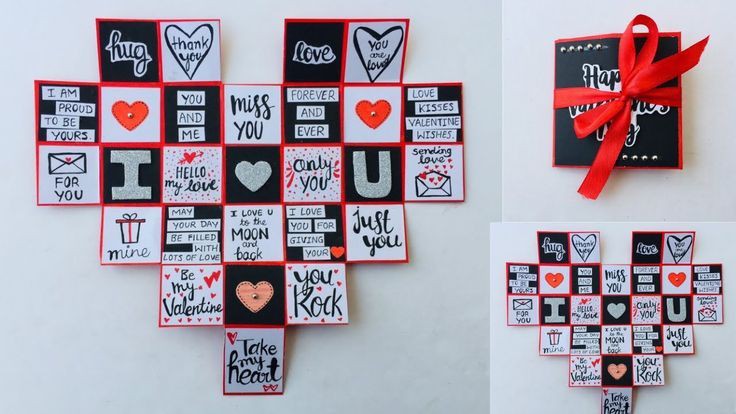 hug
thank
you
love
you
are my
love
I AM
PROUD
TO BE
YOURS.
YOU
AND
ME
miss
YOU
FOREVER
AND
EVER
LOVE
KISSES
VALENTINE
WISHES.
FOR
YOU
I
HELLO
my love
only
YOU
U
sending
love
mine
MAY
YOUR DAY
BE FILLED
WITH
LOTS OF LOVE
I LOVE U
to the
MOON
and
back
I LOVE
YOU FOR
GIVING
YOUR
Just
you
Be
my
Valentine
you
Rock
Take
my
heart
Happy
Valentine's
Day
hug
thank
you
love
I AM
PROUD
TO BE
YOURS.
YOU
AND
ME
miss
YOU
FOREVER
AND
EVER
LOVE
KISSES
VALENTINE
WISHES.
FOR
YOU
I
HELLO
my love
only
YOU
U
sending
love
mine
MAY
YOUR DAY
BE FILLED
WITH
LOTS OF LOVE
I LOVE U
to the
MOON
and
back
I LOVE
YOU FOR
GIVING
YOUR
Just
you
Be
my
Valentine
you
Rock
Take
my
heart